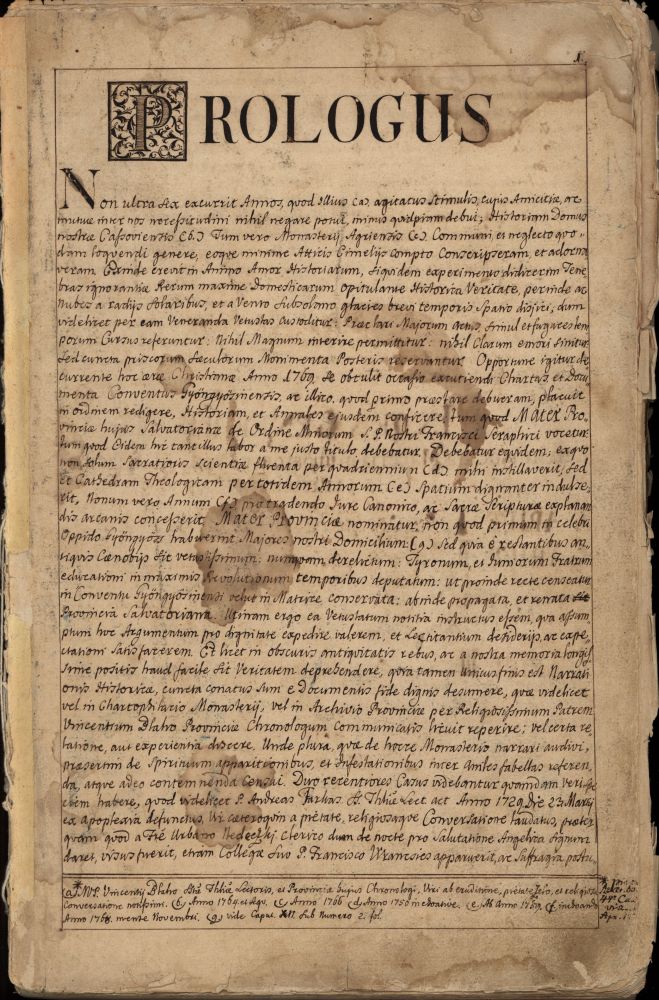 1.
PROLOGUS
Non ultra sex excurrit Annos, quod illius (a) agitatus stimulis, cujus Amicitiæ, ac
mutuæ inter nos necessitudini nihil negare potui, minus quidpiam debui; Historiam Domus
nostræ Cassoviensis (b.) Tum vero Monasterij Agriensis (c) Communi, et neglecto quo-
dam loquendi genere, eoque minime Atticis Cimelijs Compto Conscripserim, et adorna
veram. Exinde crevit in Animo Amor Historiarum, siquidem experimento didicerim Tene
bras ignorantiæ Rerum maxime Domesticarum opitulante Historica Veritate, perinde ac
nubes a radijs Solaribus, et a Vento Subsolano glacies brevi temporis Spatio disjici, dum
videlicet per eam Veneranda Vetustas Custoditur: Præclari Majorum actus, simul et fugaces tem
porum Cursus referuntur: Nihil Magnum interire permittitur: nihil Clarum emori sinitur
sed cuncta priscorum Sæculorum Monimenta Posteris reservantur. Opportune igitur de
currente hoc æræ Christianæ Anno 1769 se obtulit occasio excutiendi Chartas et Docu
menta Conventus Gyöngyösiensis, ac illico, quod primo præstare debueram, placuit
in ordinem redigere, Historiam, et Annales ejusdem conficere, tum quod Mater Pro
vinciæ hujus Salvatorianæ de Ordine Minorum S. P. Nostri Francisci Seraphici vocetur
tum quod Eidem hic tantillus labor a me justo titulo debebatur. Debebatur equidem, ex quo
non solum Sacratioris Scientiæ fluenta per quadriennium (d) mihi instillaverit, sed
et Cathedram Theologicam per totidem Annorum (e) Spatium dignanter indulse
rit, Nonum vero Annum (f) pro tradendo Jure Canonico, ac Sacræ Scripturæ explanan
dis arcanis concesserit. Mater Provinciæ nominatur, non quod primum in celebri
Oppido Gyöngyös habuerint Majores nostri Domicilium: (g) Sed quia e restantibus an
tiquis Cænobijs sit vetustissimum: nunquam derelictum: Tyronum, et Juniorum Fratrum
educationi in maximis Revolutionum temporibus deputatum: ut proinde recte censeatur
in Conventu Gyöngyösiensi velut in Matrice conservata: abinde propagata, et renata
Provincia Salvatoriana. Utinam ergo ea Vetustatum notitia instructus essem, qua assum
ptum hoc Argumentum pro dignitate expedire valerem, et Legitantium desiderijs, ac expe
ctationi satisfacerem. Et licet in obscuris antiquitatis rebus, ac a nostra memoria longis
sime positis haud facile sit Veritatem deprehendere, quia tamen unius finis est Narrati
onis Historicæ, cuncta conatus sum e Documentis fide dignis desumere, quæ videlicet
vel in Chartophilacio Monasterij, vel in Archivio Provinciæ per Religiosissimum Patrem
Vincentium Blaho Provinciæ Chronologum Communicatis licuit reperire; vel certa re
latione, aut experientia discere. Unde plura, quæ de hocce Monasterio narrari audivi,
præsertim de Spirituum apparitionibus, et Infestationibus inter aniles fabellas referen
da, atque adeo contemnenda Censui. Duo recentiores Casus videbantur quamdam veri spe
ciem habere, quod videlicet P. Andreas Farkas SS. Thliæ Lect act Anno 1720 Die 23 Martij
ex apoplexia defunctus, Vir cæteroquin a pietate, religiosaque Conversatione laudatus, præter
quam quod a Fre Urbano Hedeczkj Clerico dum de nocte pro Salutatione Angelica signum
daret, visus fuerit, etiam Collegæ suo P. Francisco apparuerit, ac Suffragia postu
(a) M. V. P. Vincentij Blaho SStæ Thliæ Lectoris, et Provinciæ hujus Chronologi, Viri ab eruditione, pietate, zelo, et religiosa
Conversatione notissimi. (b) Anno 1764 et seqv. (c) Anno 1766 (d) Anno 1750 inchoative. (e) Ab Anno 1759. (f) inchoando
Anno 1768. mense Novembri. (g) vide Caput XII Sub Numero 2. fol.